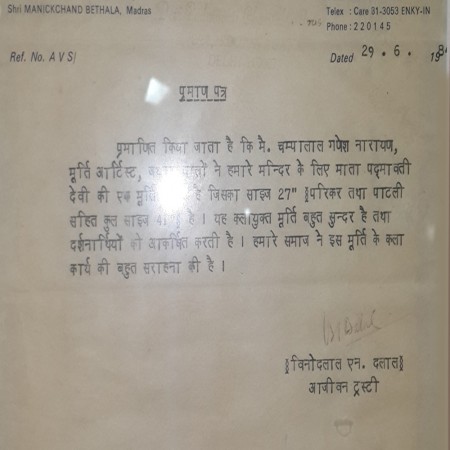 Shri MANICKCHAND BETHALA, Madras
Telex : Care 91-3053 ENKY-IN
Phone : 220145
Ref. No. A V S/
Dated 29 . 6 . 198
प्रमाण पत्र
प्रमाणित किया जाता है कि मै. चम्पालाल गणेश नारायण,
मूर्ति आर्टिस्ट, ने हमारे मन्दिर के लिए माता पद्मावती
देवी की एक मूर्ति है जिसका साइज 27" §परिकर तथा पाटली
सहित कुल साइज § है । यह कलायुक्त मूर्ति बहुत सुन्दर है तथा
दर्शनार्थियों को आकर्षित करती है । हमारे समाज ने इस मूर्ति के कला
कार्य की बहुत सराहना की है ।
§विनोदलाल एन. दलाल§
आजीवन ट्रस्टी